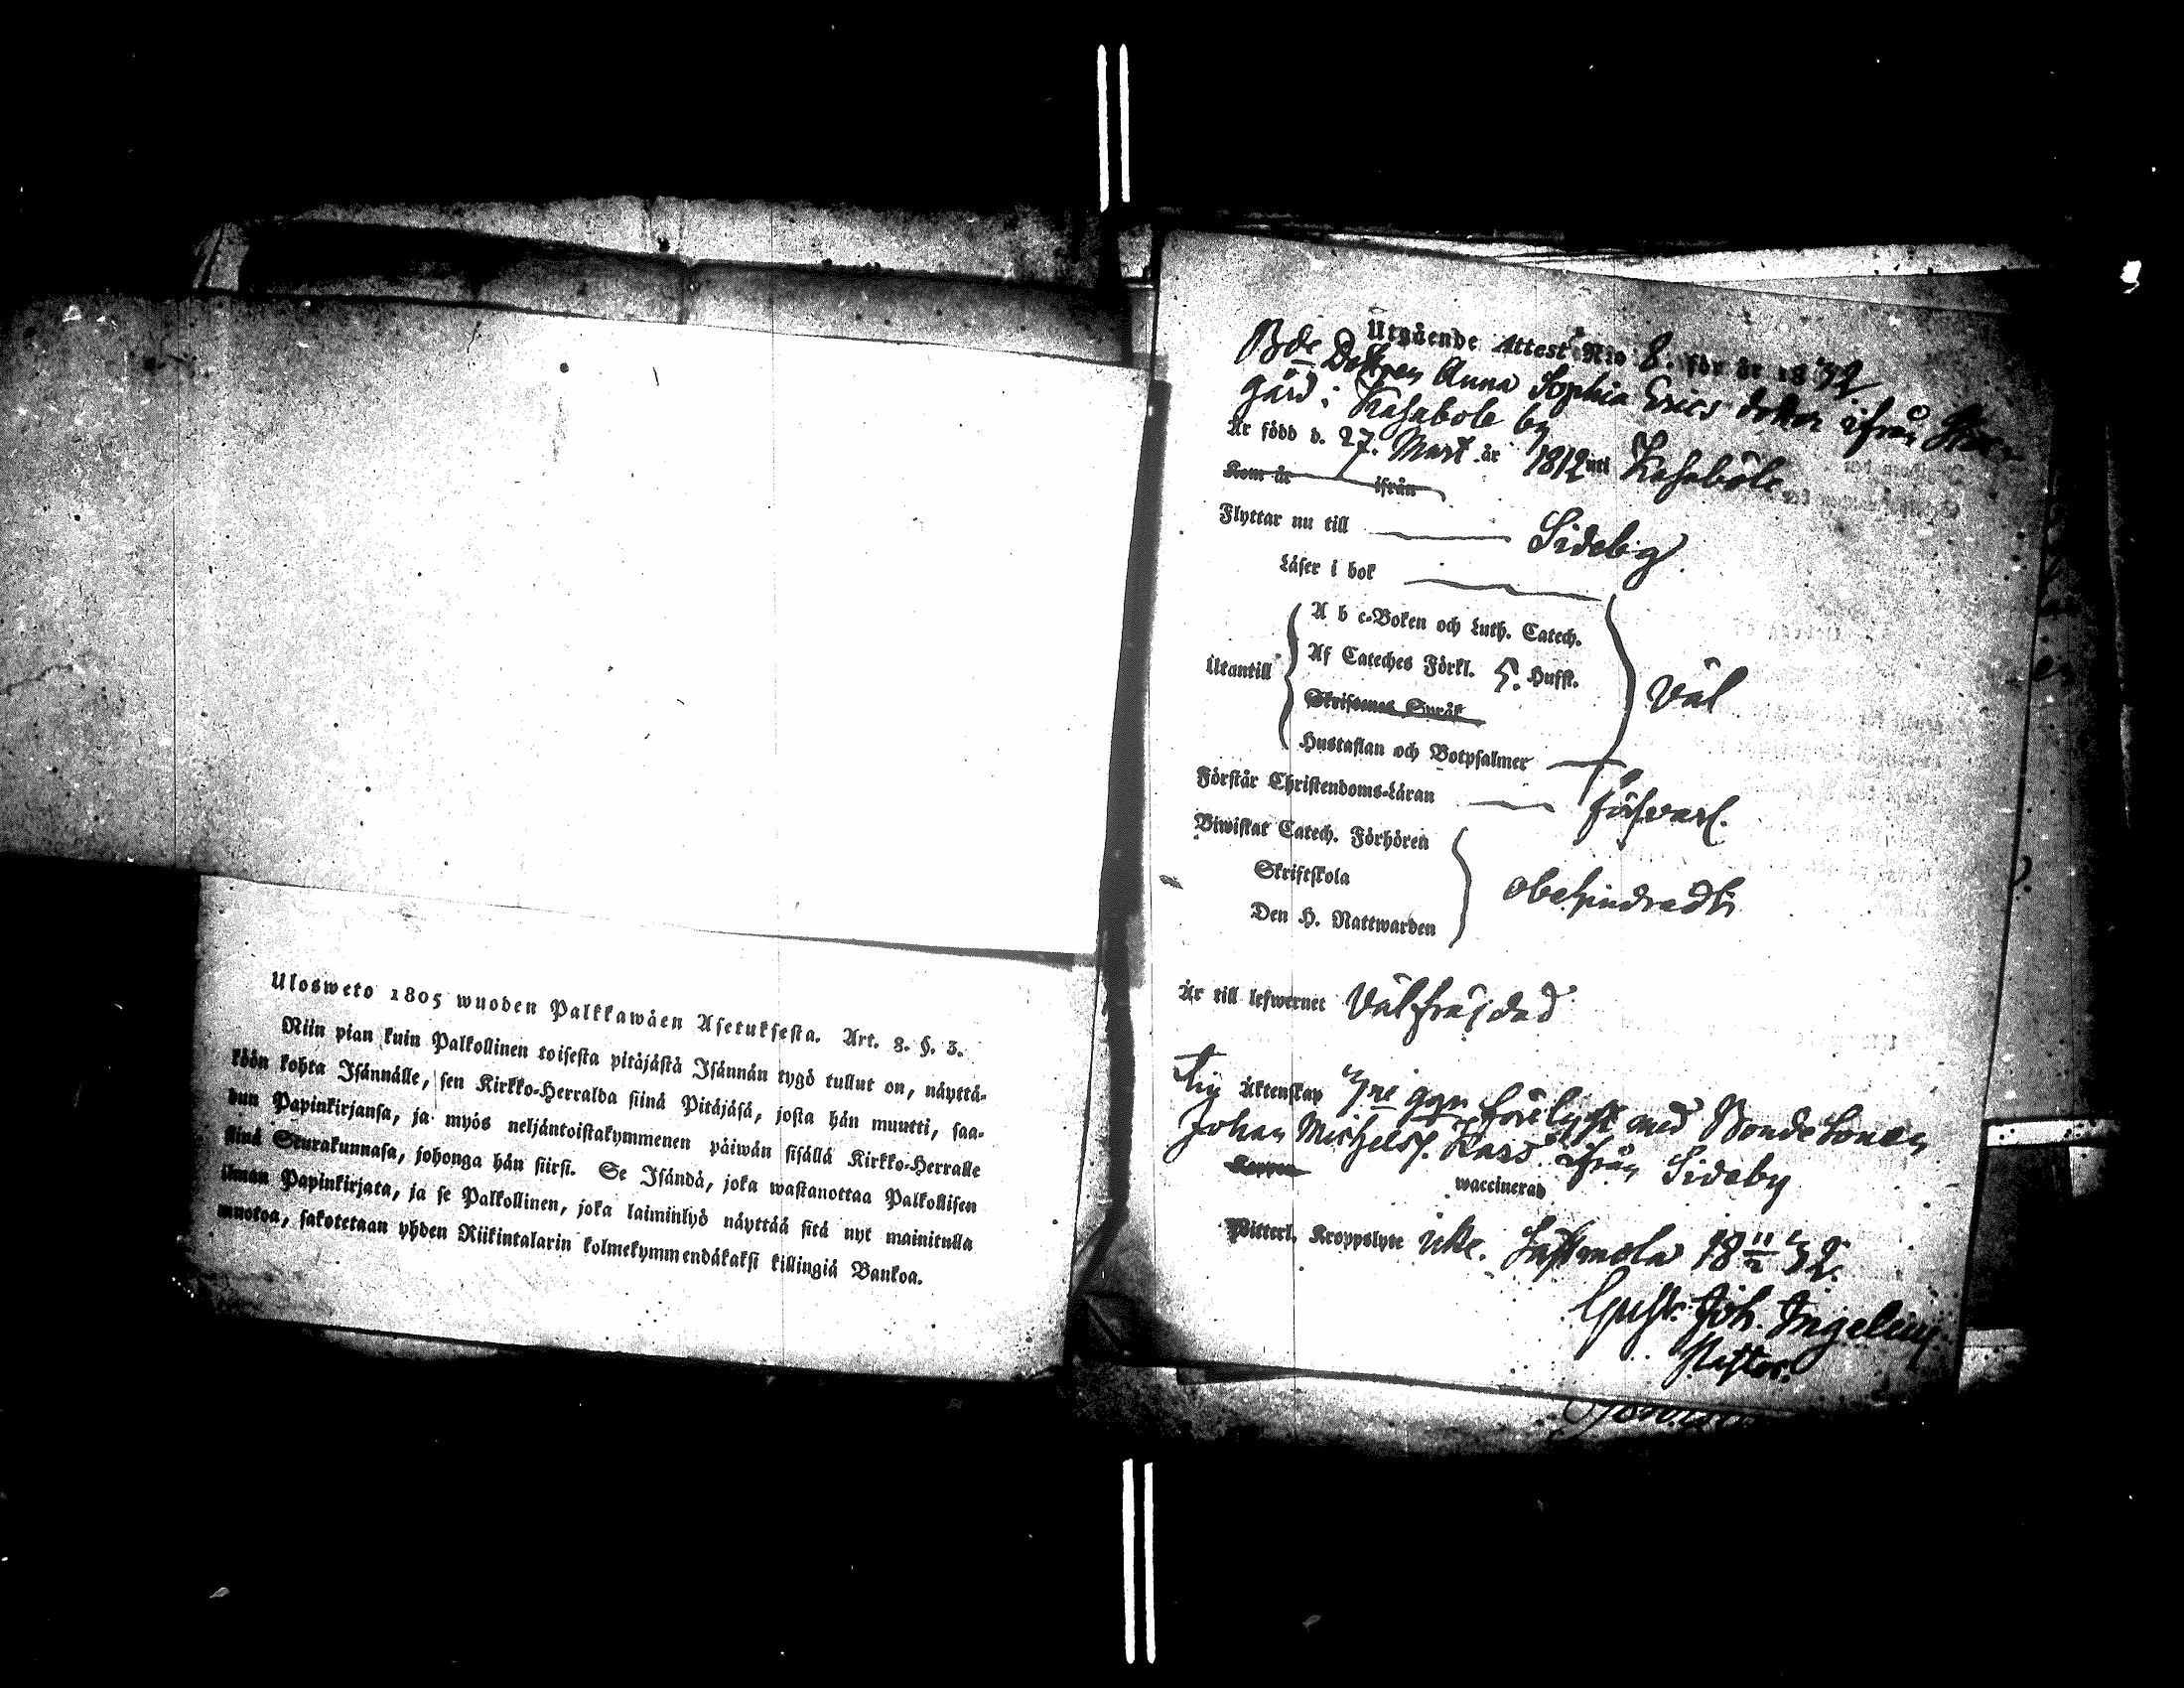 Ulosweto 1805 wuoden Palkkawåen Asetuksesta. Art. 8. §. 3.
Niin pian kuin Palkollinen toisesta pitåjåstå Isånnån tygö tullut on, nåyttå-
köön kohta Isånnålle, sen Kirkko-Herralda siinå Pitåjåså, josta hån muutti, saa-
dun Papinkirjansa, ja myös neljåntoistakymmenen påiwån sisållå Kirkko-Herralle
siinå Seurakunnasa, johonga hån siirsi. Se Isåndå, joka wastanottaa Palkollisen
ilman Papinkirjata, ja se Palkollinen, joka laiminlyö nåyttåå sitå nyt mainitulla
muotoa, sakotetaan yhden Riikintalarin kolmekymmendåkaksi killingiå Bankoa.
Utgående Attest N:o 8. för år 1832
Bde Dottren Anna Sophia Ericsdotter ifrån
gård i Kasaböle by
År född d. 27. Mart. år 1812 uti Kasaböle
Kom år ifrån
Flyttar nu till Sideby
Låser i bok
A b c-Boken och Luth. Catech.
Utantill Af Cateches Förkl. 5. Hufst.
Skriftenes Språk
Hustaflan och Botpsalmer
Väl
Förstår Christendoms-Låran försvarl.
Biwistat Catech. Förhören
Skriftskola
Den H. Nattwarden
obehindradt
År till lefwernet Välfräjdad
Till Åktenskap 3ne ggr förelyst med Bonde Sonen
Johan Michelss. Rass ifrån Sideby
Koppor waccinerad
Ytterl. Kroppslyte icke. Lappmola 18 11/2 32.
Gust. Joh. Ingelius
Pastor.